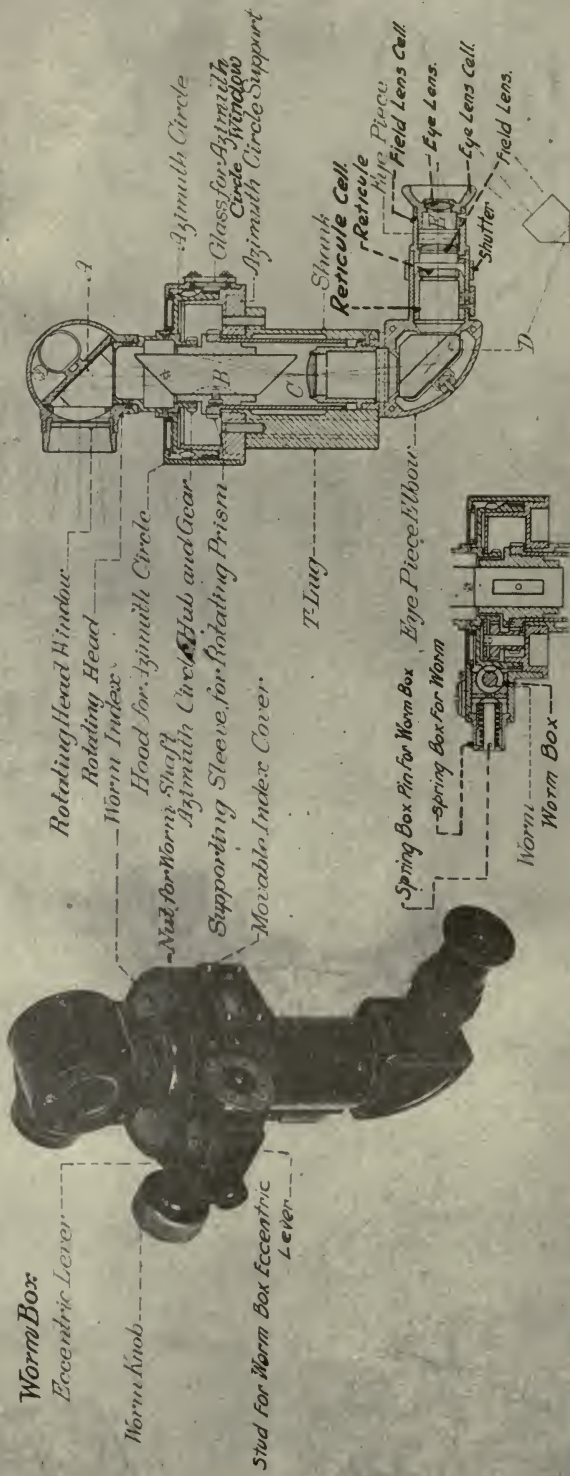 Worm Box
Eccentric Lever
Worm Knob
Stud For Worm Box Eccentric
Lever
Rotating Head Window
Rotating Head
Worm Index
Hood for Azimuth Circle
Nut, for Worm Shaft
Azimuth Circle Hub and Gear
Supporting Sleeve, for Rotating Prism
Movable Index Cover
T-Lug
Spring Box Pin For Worm Box
Spring Box For Worm
Worm
Worm Box
Eye Piece Elbow
A
B
C
D
E
Azimuth Circle
Glass for Azimuth
Circle Window
Azimuth Circle Support
Shank
Reticule Cell.
Reticule
Eye Piece
Field Lens Cell.
Eye Lens.
Eye Lens Cell.
Field Lens.
Shutter